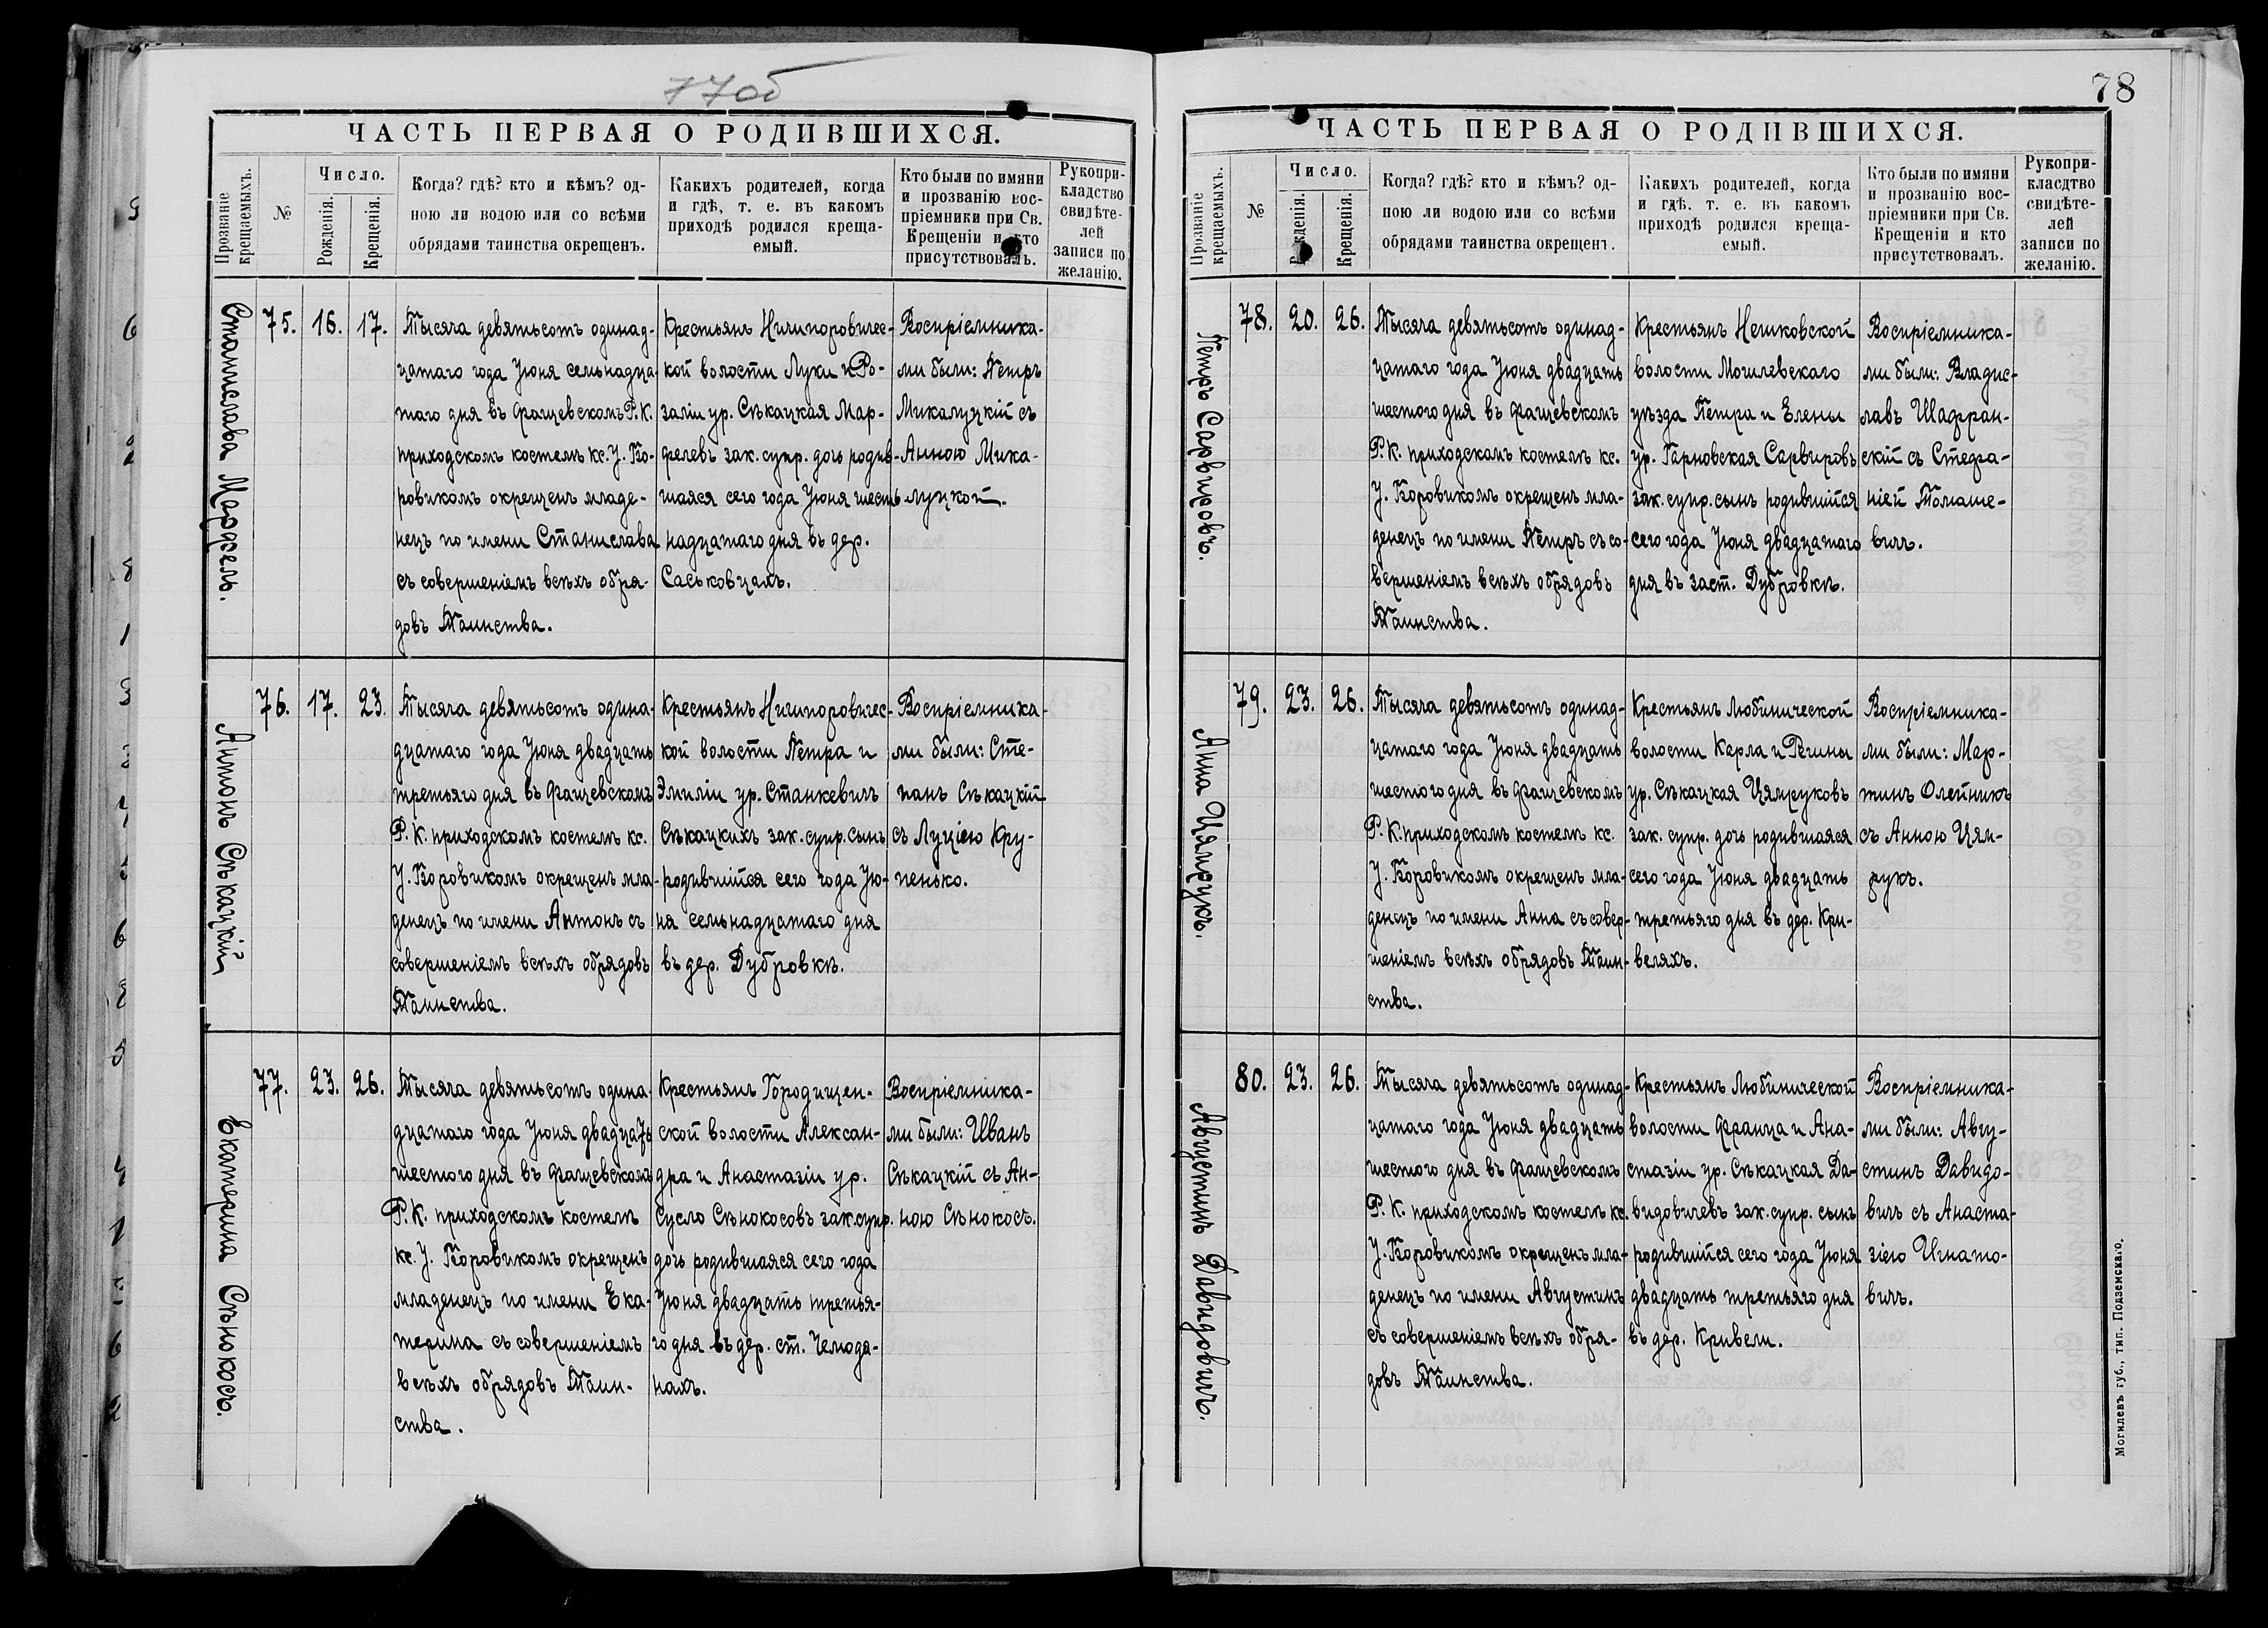 77об
ЧАСТЬ ПЕРВАЯ О РОДИВШИХСЯ.
Прозваніе крещаемыхъ.
№
Число.
Рожденія.
Крещенія.
Когда? гдѣ? кто и кѣмъ? од-
ною ли водою или со всѣми
обрядами таинства окрещенъ.
Какихъ родителей, когда
и гдѣ, т. е. въ какомъ
приходѣ родился креща-
емый.
Кто были по имяни
и прозванію вос-
пріемники при Св.
Крещеніи и кто
присутствовалъ.
Рукопри-
кладство
свидѣте-
лей
записи по
желанію.
Станислава Марфель.
75.
16.
17.
Тысяча девятьсотъ одинад-
цатаго года Іюня семьнадца
таго дня въ Фащевскомъ Р. К.
приходскомъ костелѣ кс. У. Бо-
ровикомъ окрещенъ младе-
нецъ по имени Станислава
съ совершеніемъ всѣхъ обря-
довъ Таинства.
Крестьянъ Ничипоровичес-
кой волости Луки и Ро-
заліи ур. Сѣкацкая Мар-
фелевъ зак. супр. дочь родив-
шаяся сего года Іюня шесть
надцатаго дня въ дер.
Саськовцахъ.
Воспріемника-
ми были: Петръ
Микалуцкій съ
Анною Мика-
луцкой.
Антонъ Сѣкацкій
76.
17.
23.
Тысяча девятьсотъ одина-
дцатаго года Іюня двадцать
третьяго дня въ Фащевскомъ
Р. К. приходскомъ костелѣ кс.
У. Боровикомъ окрещенъ мла-
денецъ по имени Антонъ съ
совершеніемъ всѣхъ обрядовъ
Таинства.
Крестьянъ Ничипоровичес-
кой волости Петра и
Эмиліи ур. Станкевичъ
Сѣкацкихъ зак. супр. сынъ
родившійся сего года Ію-
ня семьнадцатаго дня
въ дер. Дубровкѣ.
Воспріемника-
ми были: Сте-
панъ Сѣкацкій
съ Луціею Кру-
пенько.
Екатерина Сѣнокосъ.
77.
23.
26.
Тысяча девятьсотъ одина-
дцатаго года Іюня двадцать
шестого дня въ Фащевскомъ
Р. К. приходскомъ костелѣ
кс. У. Боровикомъ окрещенъ
младенецъ по имени Ека-
терина съ совершеніемъ
всѣхъ обрядовъ Таин-
ства.
Крестьянъ Городищен-
ской волости Алексан-
дра и Анастазіи ур.
Сусло Сѣнокосовъ зак. супр.
дочь родившаяся сего года
Іюня двадцать третья-
го дня въ дер. ст. Чемода-
нахъ.
Воспріемника-
ми были: Иванъ
Сѣкацкій съ Ан-
ною Сѣнокосъ.
78
ЧАСТЬ ПЕРВАЯ О РОДИВШИХСЯ.
Прозваніе крещаемыхъ.
№
Число.
Рожденія.
Крещенія.
Когда? гдѣ? кто и кѣмъ? од-
ною ли водою или со всѣми
обрядами таинства окрещенъ.
Какихъ родителей, когда
и гдѣ, т. е. въ какомъ
приходѣ родился креща-
емый.
Кто были по имяни
и прозванію вос-
пріемники при Св.
Крещеніи и кто
присутствовалъ.
Рукопри-
класдтво
свидѣте-
лей
записи по
желанію.
Петръ Сарвировъ.
78.
20.
26.
Тысяча девятьсотъ одинад-
цатаго года Іюня двадцать
шестого дня въ Фащевскомъ
Р. К. приходскомъ костелѣ кс.
У. Боровикомъ окрещенъ мла-
денецъ по имени Петръ съ со-
вершеніемъ всѣхъ обрядовъ
Таинства.
Крестьянъ Нешковской
волости Могилевскаго
уѣзда Петра и Елены
ур. Гарновская Сарвировъ
зак. супр. сынъ родившійся
сего года Іюня двадцатаго
дня въ заст. Дубровкѣ.
Воспріемника-
ми были: Владис-
лавъ Шафран-
скій съ Стефа-
ніей Томаше-
вичъ.
Анна Цямрукъ.
79.
23.
26.
Тысяча девятьсотъ одинад-
цатаго года Іюня двадцать
шестого дня въ Фащевскомъ
Р. К. приходскомъ костелѣ кс.
У. Боровикомъ окрещенъ мла-
денецъ по имени Анна съ совер-
шеніемъ всѣхъ обрядовъ Таин-
ства.
Крестьянъ Любинической
волости Карла и Регины
ур. Сѣкацкая Цямруковъ
зак. супр. дочь родившаяся
сего года Іюня двадцать
третьяго дня въ дер. Кри-
веляхъ.
Воспріемника-
ми были: Мар-
тинъ Олейникъ
съ Анною Цям-
рукъ.
Августинъ Давидовичъ.
80.
23.
26.
Тысяча девятьсотъ одинад-
цатаго года Іюня двадцать
шестого дня въ Фащевскомъ
Р. К. приходскомъ костелѣ кс.
У. Боровикомъ окрещенъ мла-
денецъ по имени Августинъ
съ совершеніемъ всѣхъ обря-
довъ Таинства.
Крестьянъ Любинической
волости Франца и Ана-
стазіи ур. Сѣкацкая Да-
видовичевъ зак. супр. сынъ
родившійся сего года Іюня
двадцать третьяго дня
въ дер. Кривели.
Воспріемника-
ми были: Авгу-
стинъ Давидо-
вичъ съ Анаста-
зіею Игнато-
вичъ.
Могилевъ губ., тип. Подземскаго.